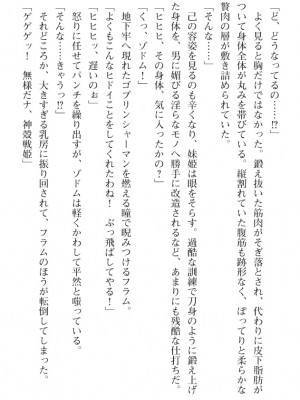 「ど、どうなってるの……!?」
よく見ると胸だけではなかった。鍛え抜いた筋肉がそぎ落とされ、代わりに皮下脂肪が
ついて身体全体が丸みを帯びている。縦割れていた腹筋も跡形なく、ぽってりと柔らかな
贅肉の層が敷き詰められていた。
「そんな……」
己の容姿を見るのも辛くなり、妹姫は眼をそらす。過酷な訓練で刀身のように鍛え上げ
た身体を、男に媚びる淫らなモノへ勝手に改造されるなど、あまりにも残酷な仕打ちだ。
「ヒヒヒ、その身体、気に入ったかの？」
「くっ、ゾドム！」
地下牢へ現れたゴブリンシャーマンを燃える瞳で睨みつけるフラム。
「よくもこんなヒドイことをしてくれたわね！　ぶっ飛ばしてやる！」
「ヒヒヒッ、遅いのぉ」
怒りに任せてパンチを繰り出すが、ゾドムは軽くかわして平然と嗤っている。
「そんな……きゃうっ!?」
それどころか、大きすぎる乳房に振り回されて、フラムのほうが転倒してしまった。
「ゲゲゲッ！　無様だナ、神殻戦姫」